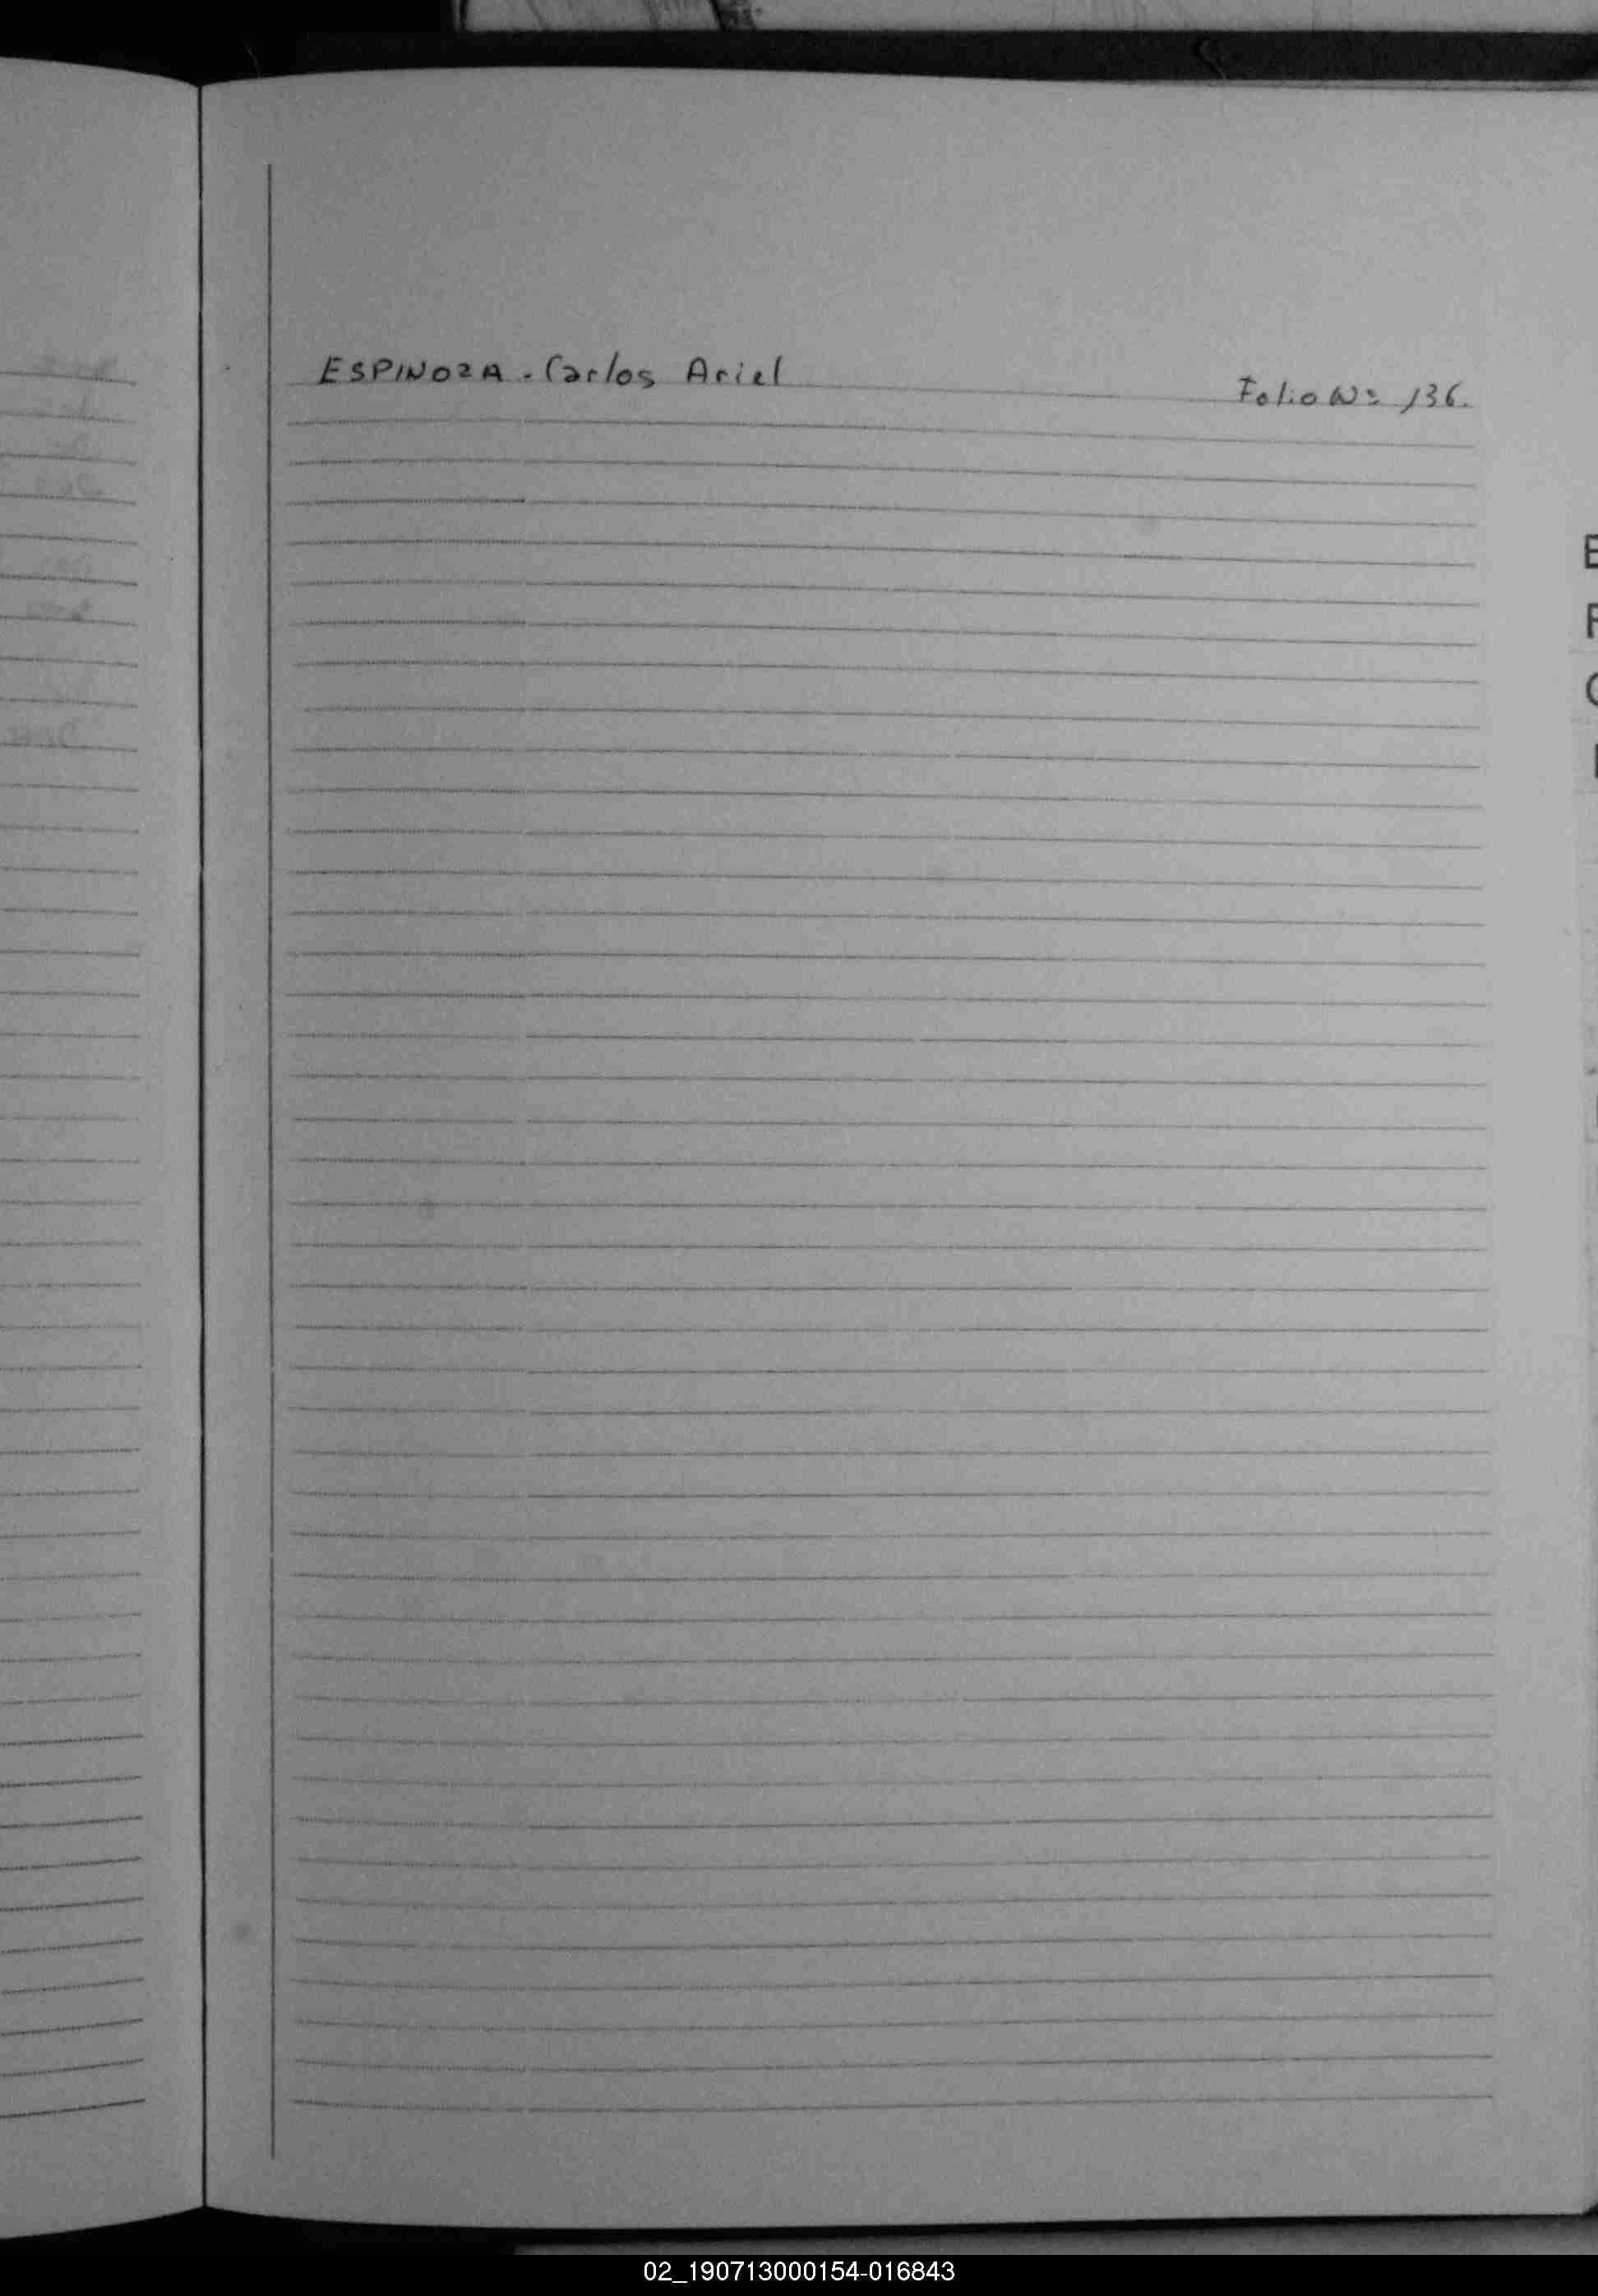 ESPINOZA - Carlos Ariel Folio Nº 136.
E
F
02_190713000154-016843